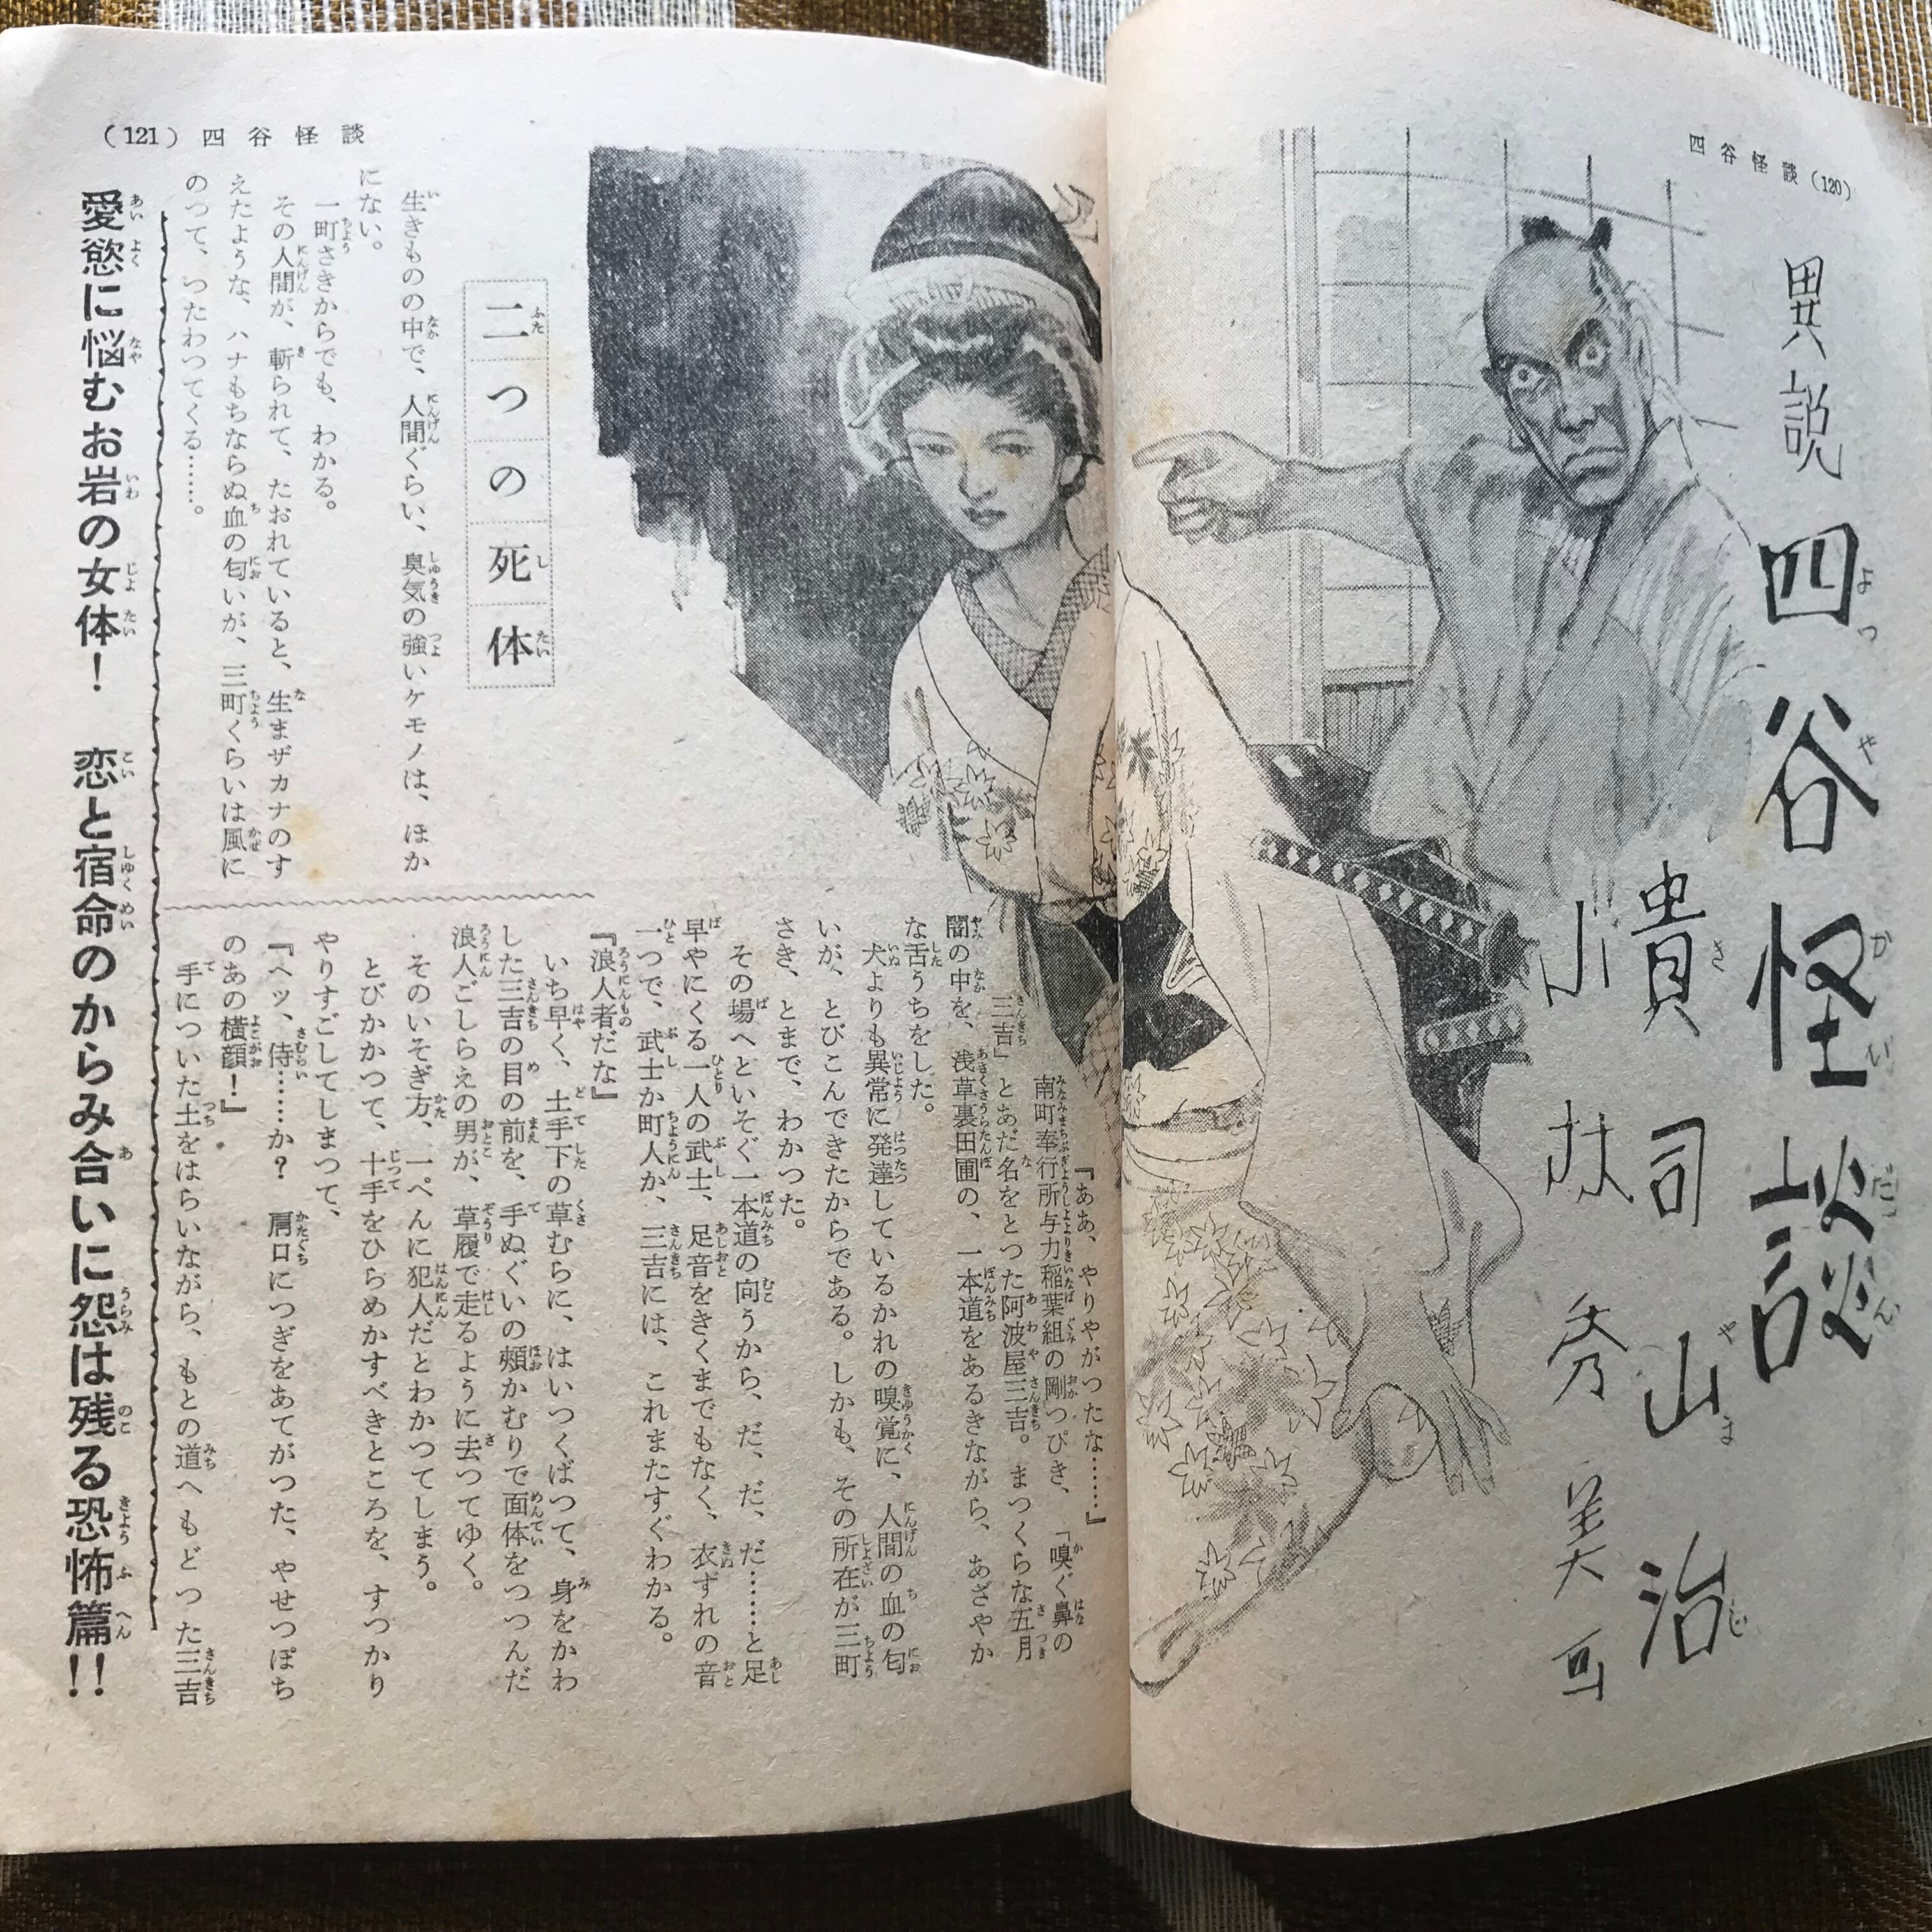 四谷怪談(120)
異説
四谷怪談
貴司山治
小林秀美画
(121)四谷怪談
二つの死体
生きものの中で、人間ぐらい、臭気の強いケモノは、ほか
にない。
一町さきからでも、わかる。
その人間が、斬られて、たおれていると、生まザカナのす
えたような、ハナもちならぬ血の匂いが、三町くらいは風に
のって、つたわつてくる……。
『ああ、やりやがつたな……』
南町奉行所与力稲葉組の剛つぴき、「嗅ぐ鼻の
三吉」とあだ名をとつた阿波屋三吉。まつくらな五月
闇の中を、浅草裏田圃の、一本道をあるきながら、あざやか
な舌うちをした。
犬よりも異常に発達しているかれの嗅覚に、人間の血の匂
いが、とびこんできたからである。しかも、その所在が三町
さき、とまで、わかつた。
その場へといそぐ一本道の向うから、だ、だ、だ……と足
早やにくる一人の武士、足音をきくまでもなく、衣ずれの音
一つで、武士か町人か、三吉には、これまたすぐわかる。
『浪人者だな』
いち早く、土手下の草むらに、はいつくばつて、身をかわ
した三吉の目の前を、手ぬぐいの頬かむりで面体をつつんだ
浪人ごしらえの男が、草履で走るように去つてゆく。
そのいそぎ方、一ぺんに犯人だとわかつてしまう。
とびかかつて、十手をひらめかすべきところを、すつかり
やりすごしてしまつて、
『ヘッ、侍……か? 肩口につぎをあてがつた、やせつぽち
のあの横顔!』
手についた土をはらいながら、もとの道へもどつた三吉
愛慾に悩むお岩の女体! 恋と宿命のからみ合いに怨は残る恐怖篇!!